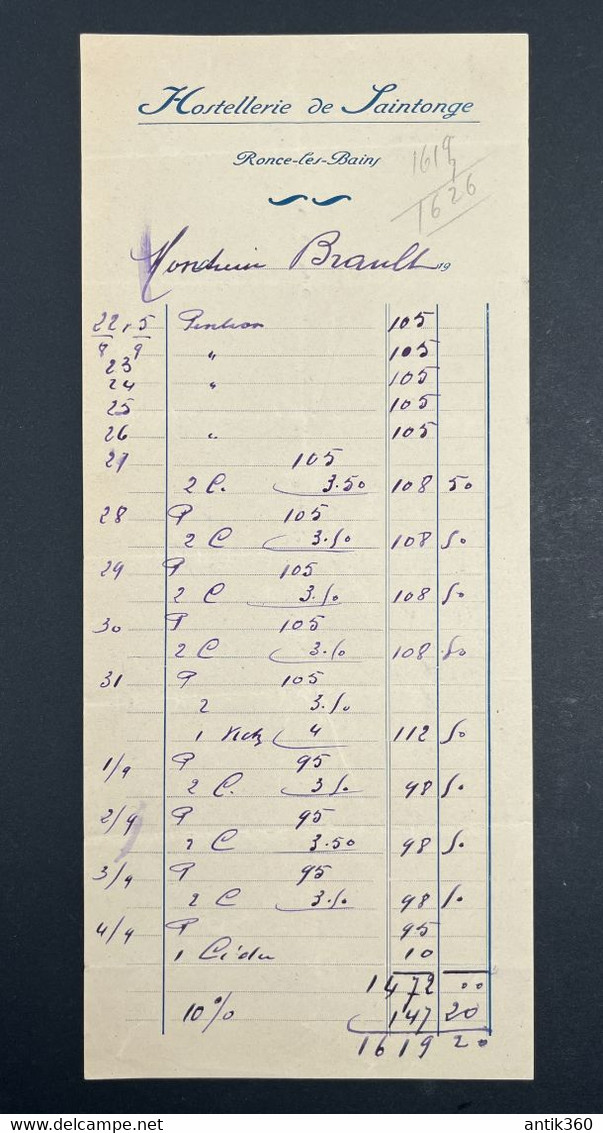 Hostellerie de Saintonge
Ronce-les-Bains
1619
1626
Monsieur Brault 19
22/8 5/9 Pension 105
23 " 105
24 " 105
25 105
26 " 105
27 105
2 C. 3.50 108 50
28 P 105
2 C 3.50 108 50
29 P 105
2 C 3.50 108 50
30 P 105
2 C 3.50 108 50
31 P 105
2 3.50
1 Vichy 4 112 50
1/9 P 95
2 C. 3.50 98 50
2/9 P 95
2 C 3.50 98 50
3/9 P 95
2 C 3.50 98 50
4/9 P 95
1 Cidre 10
1472 00
10% 147 20
1619 20
www.delcampe.net
antik360